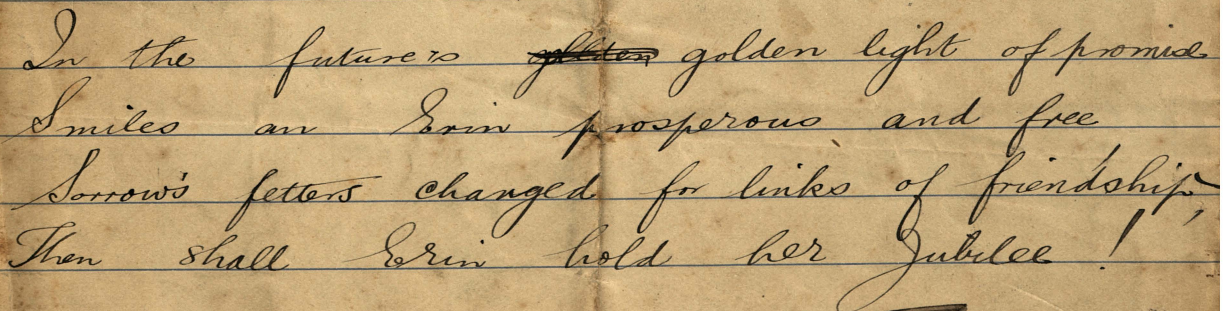 In the future's golden light of promise
Smiles an Erin prosperous and free
Sorrow's fetters changed for links of friendship,
Then shall Erin hold her Jubilee!